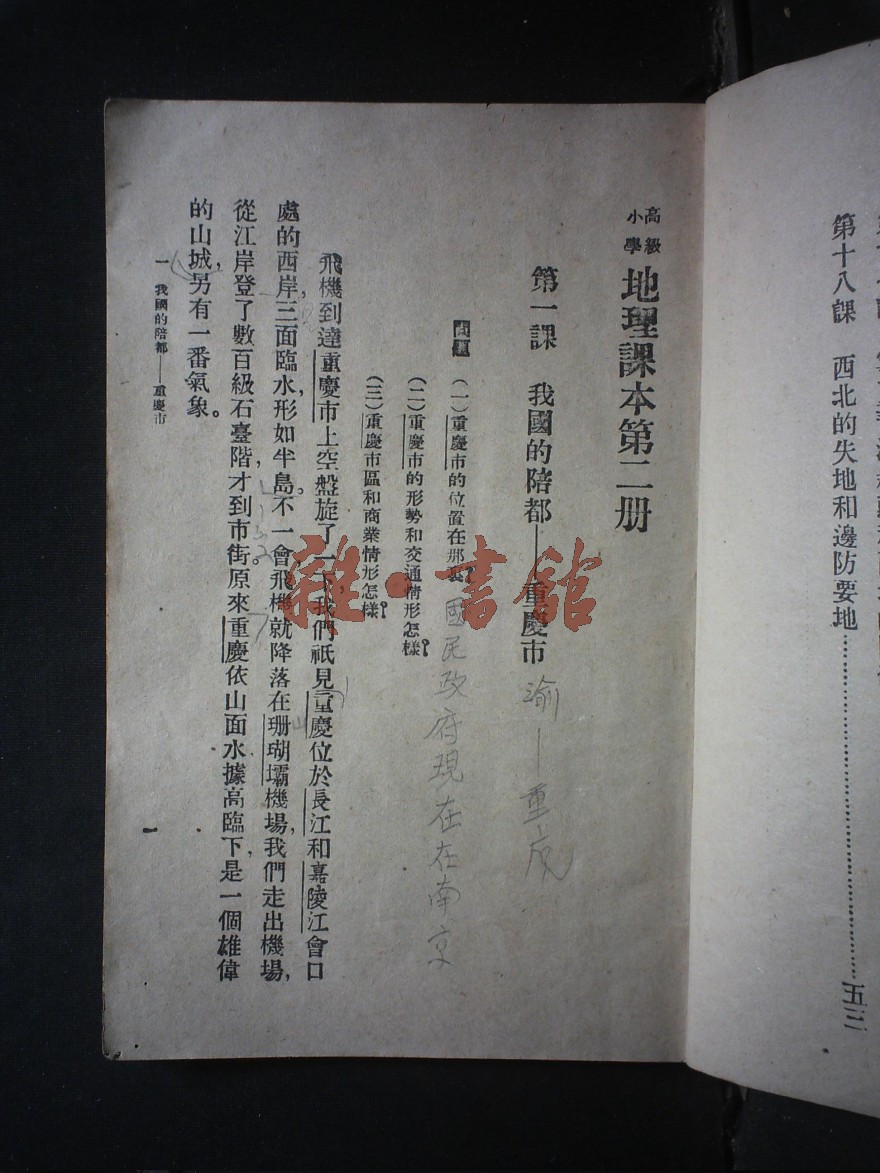 第十八課　西北的失地和邊防要地……五三
高級小學　地理課本第二册
第一課　我國的陪都——重慶市
渝—重庆
問題　(一)重慶市的位置在那裏？
國民政府現在在南京
(二)重慶市的形勢和交通情形怎樣？
(三)重慶市區和商業情形怎樣？
飛機到達重慶市上空盤旋了一下，我們祇見重慶位於長江和嘉陵江會口
處的西岸，三面臨水，形如半島。不一會飛機就降落在珊瑚壩機場，我們走出機場，
從江岸登了數百級石臺階，才到市街。原來重慶依山面水，據高臨下，是一個雄偉
的山城，另有一番氣象。
一　我國的陪都——重慶市
一
雜·書館